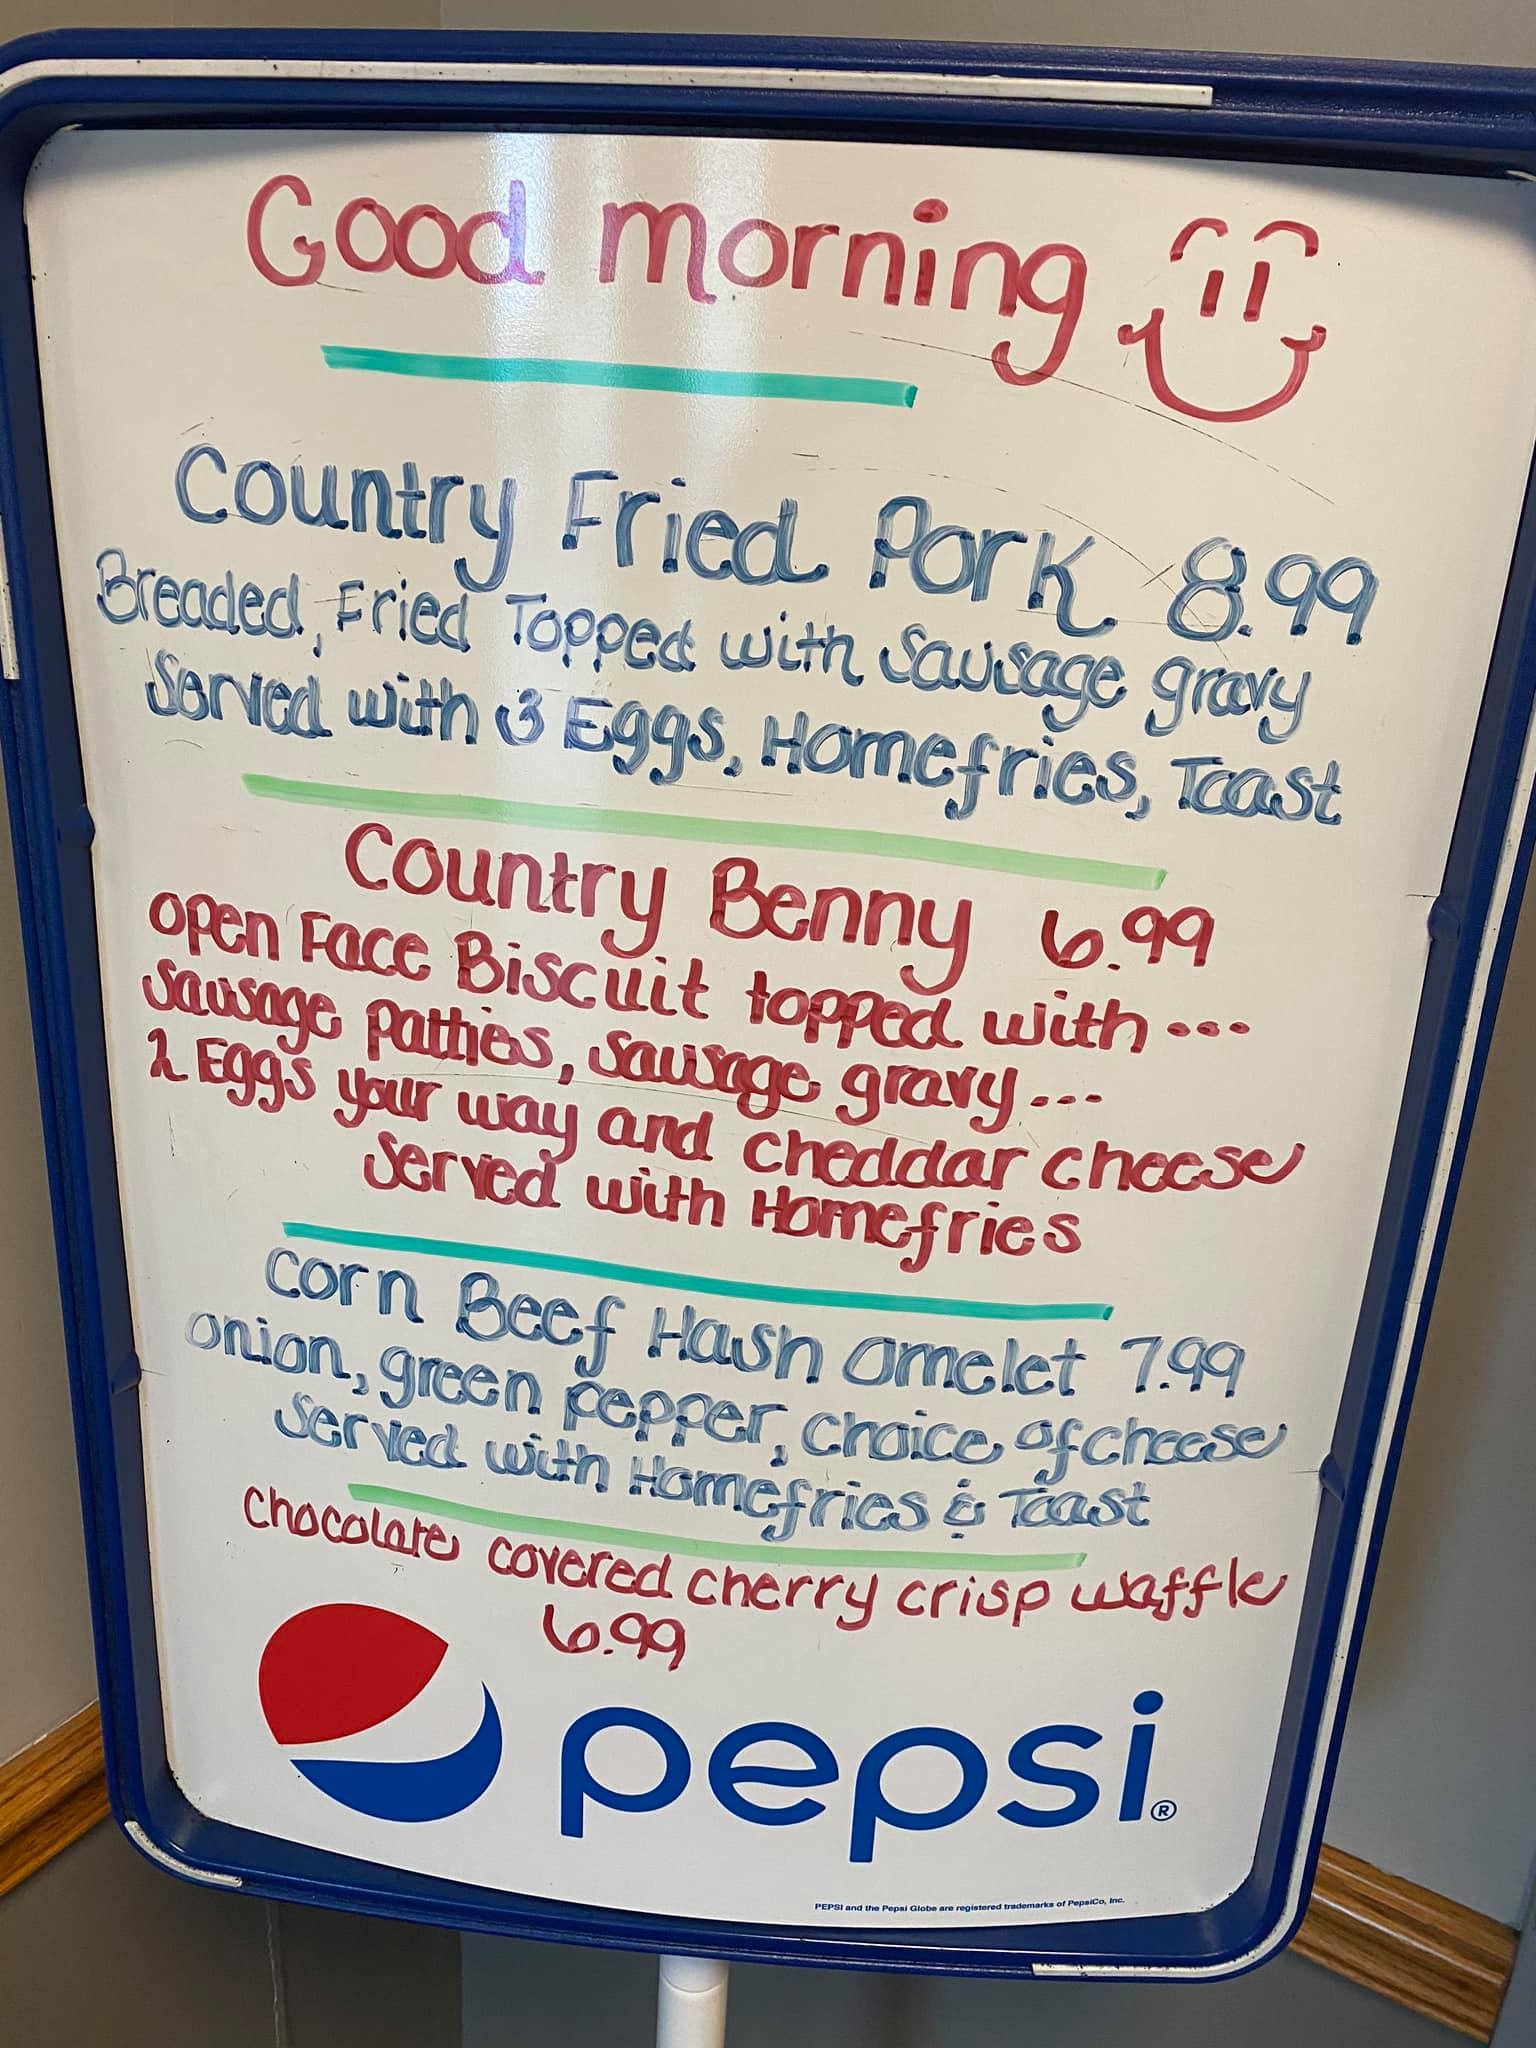 Good morning
Country Fried Pork 8.99
Breaded, Fried Topped with Sausage gravy
Served with 3 Eggs, Homefries, Toast
Country Benny 6.99
open Face Biscuit topped with...
Sausage Patties, Sausage gravy...
2 Eggs your way and cheddar cheese
Served with Homefries
Corn Beef Hash Omelet 7.99
onion, green pepper, choice of cheese
Served with Homefries & Toast
Chocolate covered cherry crisp waffle
6.99
pepsi®
PEPSI and the Pepsi Globe are registered trademarks of PepsiCo, Inc.